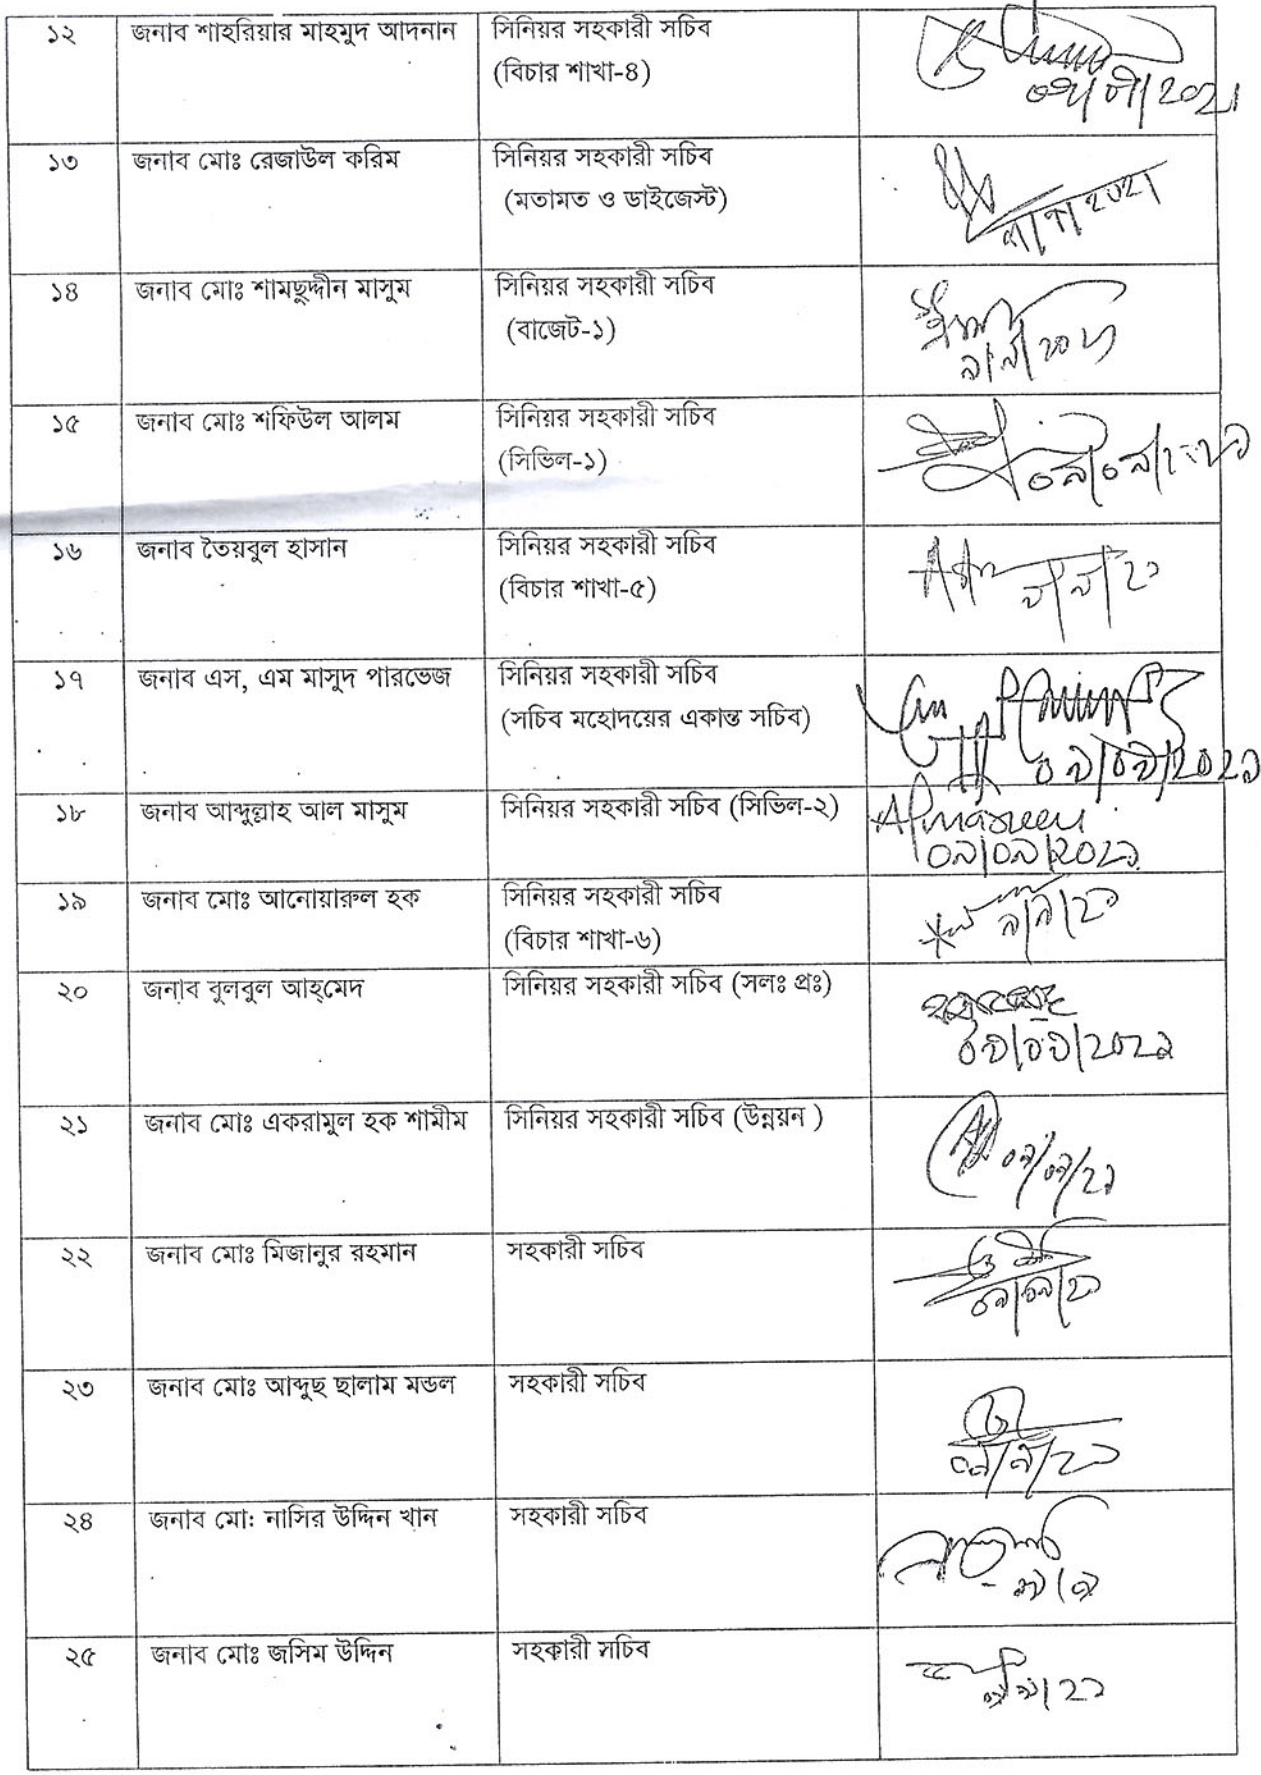 ১২ জনাব শাহরিয়ার মাহমুদ আদনান সিনিয়র সহকারী সচিব
(বিচার শাখা-৪)
১৩ জনাব মোঃ রেজাউল করিম সিনিয়র সহকারী সচিব
(মতামত ও ডাইজেস্ট)
১৪ জনাব মোঃ শামছুদ্দীন মাসুম সিনিয়র সহকারী সচিব
(বাজেট-১)
১৫ জনাব মোঃ শফিউল আলম সিনিয়র সহকারী সচিব
(সিভিল-১)
১৬ জনাব তৈয়বুল হাসান সিনিয়র সহকারী সচিব
(বিচার শাখা-৫)
৯/৯/২১
১৭ জনাব এস, এম মাসুদ পারভেজ সিনিয়র সহকারী সচিব
(সচিব মহোদয়ের একান্ত সচিব)
০৯/০৯/২০২১
১৮ জনাব আব্দুল্লাহ আল মাসুম সিনিয়র সহকারী সচিব (সিভিল-২)
০৯/০৯/২০২১
১৯ জনাব মোঃ আনোয়ারুল হক সিনিয়র সহকারী সচিব
(বিচার শাখা-৬)
৯/৯/২১
২০ জনাব বুলবুল আহ্‌মেদ সিনিয়র সহকারী সচিব (সলঃ প্রঃ)
০৯/০৯/২০২১
২১ জনাব মোঃ একরামুল হক শামীম সিনিয়র সহকারী সচিব (উন্নয়ন )
০৯/০৯/২১
২২ জনাব মোঃ মিজানুর রহমান সহকারী সচিব
০৯/০৯/২১
২৩ জনাব মোঃ আব্দুছ ছালাম মন্ডল সহকারী সচিব
২৪ জনাব মো: নাসির উদ্দিন খান সহকারী সচিব
২৫ জনাব মোঃ জসিম উদ্দিন সহকারী সচিব